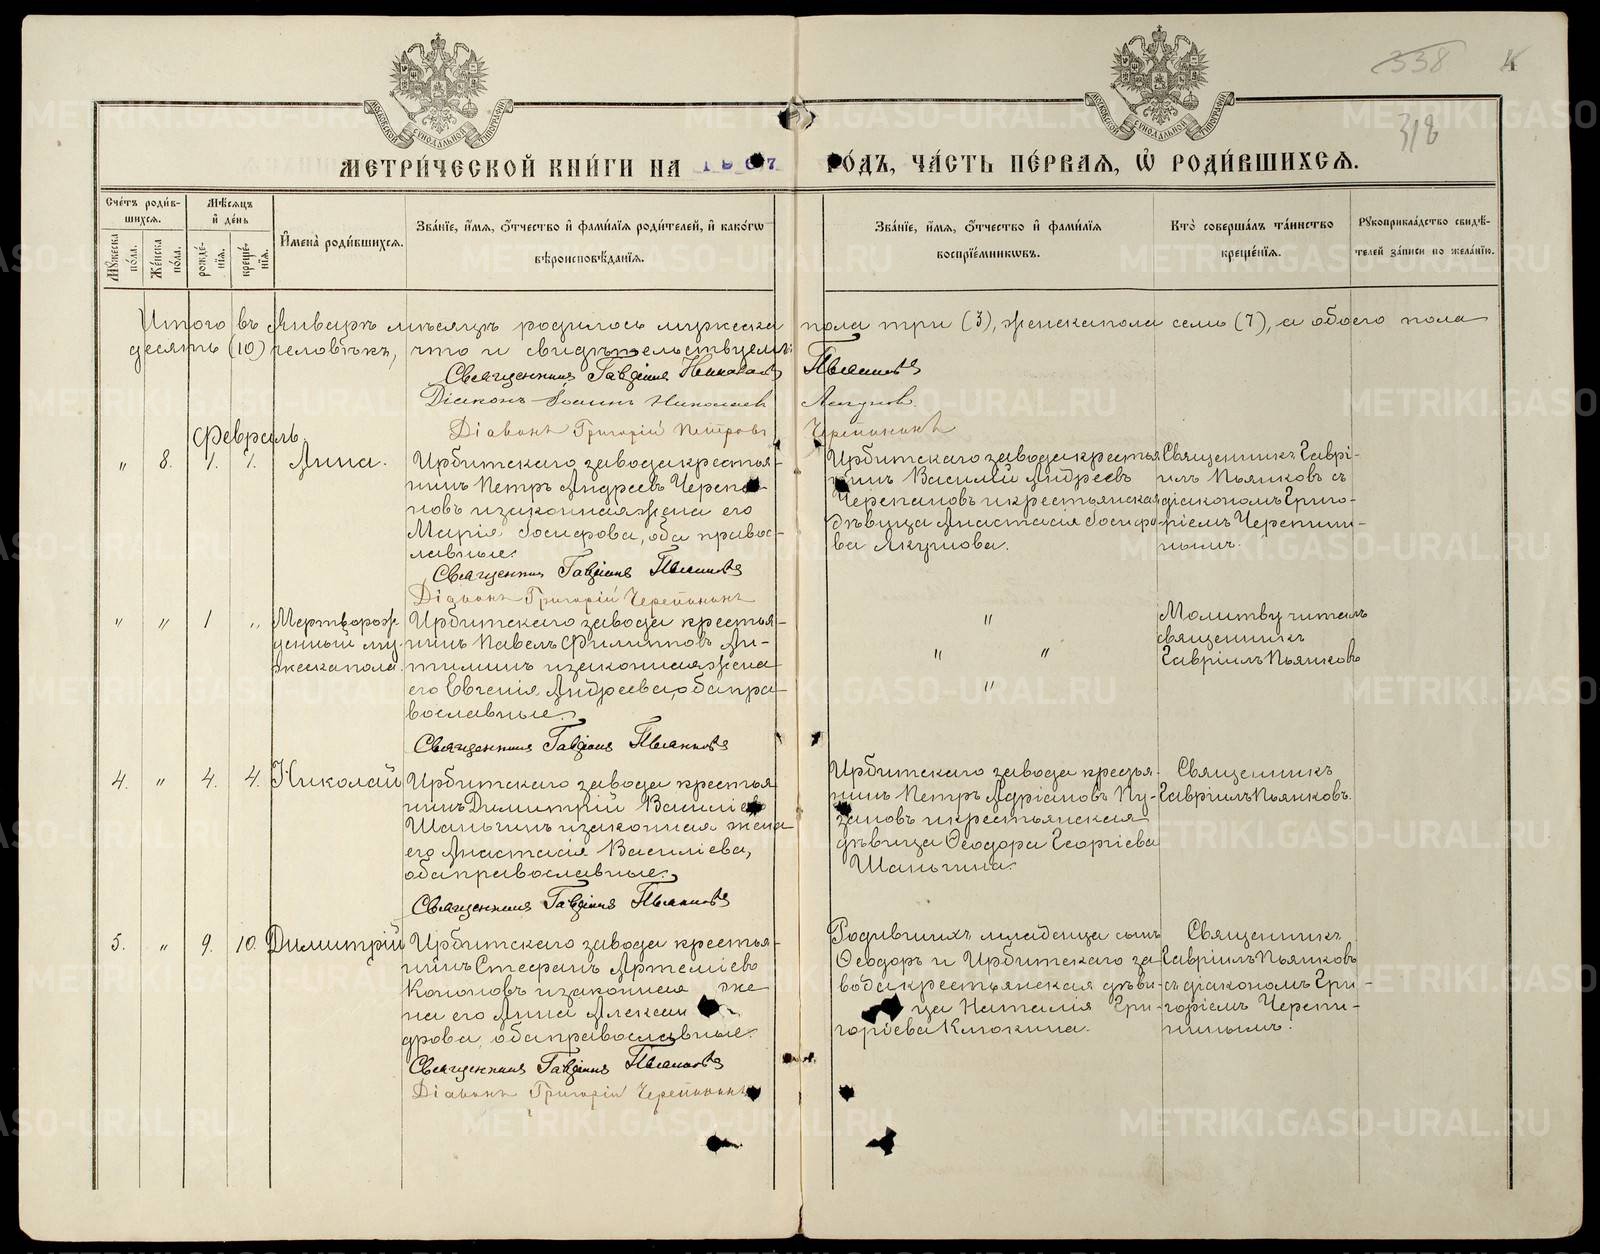 338
4
318
МОСКОВСКОЙ СѴНОДАЛЬНОЙ ТИПОГРАФІИ
МОСКОВСКОЙ СѴНОДАЛЬНОЙ ТИПОГРАФІИ
МЕТРИ́ЧЕСКОЙ КНИ́ГИ НА 1907 РО́ДЪ, ЧА́СТЬ ПЕ́РВАЯ, Ѡ҆ РОДИ́ВШИХСЯ.
Сче́тъ роди́в-
шихся.
Мѣ́сяцъ
и҆ де́нь
Му́жеска по́ла.
Же́нска по́ла.
рожде́-
нїя.
креще́-
нїя.
И҆мена̀ роди́вшихся.
Зва́нїе, и҆́мя, ѻ҆́тчество и҆ фами́лїя роди́телей, и҆ како́гѡ
вѣроисповѣ́данїя.
Зва́нїе, и҆́мя, ѻ҆́тчество и҆ фами́лїя
воспрїе́мникѡвъ.
Кто̀ соверша́лъ та́инство
креще́нїя.
Рꙋкоприкла́дство свидѣ́-
телей за́писи по жела́нїю.
Итого въ Январѣ мѣсяцѣ родилось мужеска пола три (3), женска пола семь (7), а обоего пола
десять (10) человѣкъ, что и свидѣтельствуемъ:
Священникъ Гавріилъ Николаевъ Пьянковъ
Діаконъ Іоаннъ Николаев Ляпунов
Діаконъ Григорій Петровъ Черепанинъ
Февраль.
" 8. 1. 1. Анна.
Ирбитскаго завода крестья-
нинъ Петръ Андреевъ Черепа-
новъ и законная жена его
Марія Іосифова, оба правос-
лавные.
Священникъ Гавріилъ Пьянковъ
Діаконъ Григорій Черепанинъ
Ирбитскаго завода крестья
нинъ Василій Андреевъ
Черепановъ и крестьянская
дѣвица Анастасія Іосифо-
ва Якунова.
Священникъ Гаврі-
илъ Пьянковъ съ
діакономъ Григо-
ріемъ Черепани-
нымъ.
" " 1 " Мертворож
денный му-
жеска пола.
Ирбитскаго завода крестья-
нинъ Павелъ Филипповъ Ан-
типинъ и законная жена
его Евгенія Андреева, оба пра-
вославные.
Священникъ Гавріилъ Пьянковъ
"
" "
"
Молитву читалъ
священникъ
Гавріилъ Пьянковъ
4. " 4. 4. Николай
Ирбитскаго завода крестья
нинъ Димитрій Василіевъ
Шаньгинъ и законная жена
его Анастасія Василіева,
оба православные.
Священникъ Гавріилъ Пьянковъ
Ирбитскаго завода крестья-
нинъ Петръ Адріановъ Пу-
зановъ и крестьянская
дѣвица Ѳеодора Георгіева
Шаньгина.
Священникъ
Гавріилъ Пьянковъ.
5. " 9. 10. Димитрій
Ирбитскаго завода крестья-
нинъ Стефанъ Артеміево
Кононовъ и законная же
на его Анна Алексан
дрова, оба православные.
Священникъ Гавріилъ Пьянковъ
Діаконъ Григорій Черепанинъ
Родившихъ младенца сынъ
Ѳеодоръ и Ирбитскаго за-
вода крестьянская дѣви-
ца Наталія Гри-
горіева Клюкина.
Священникъ
Гавріилъ Пьянковъ
съ діакономъ Гри-
горіемъ Черепа-
нинымъ.
METRIKI.GASO-URAL.RU